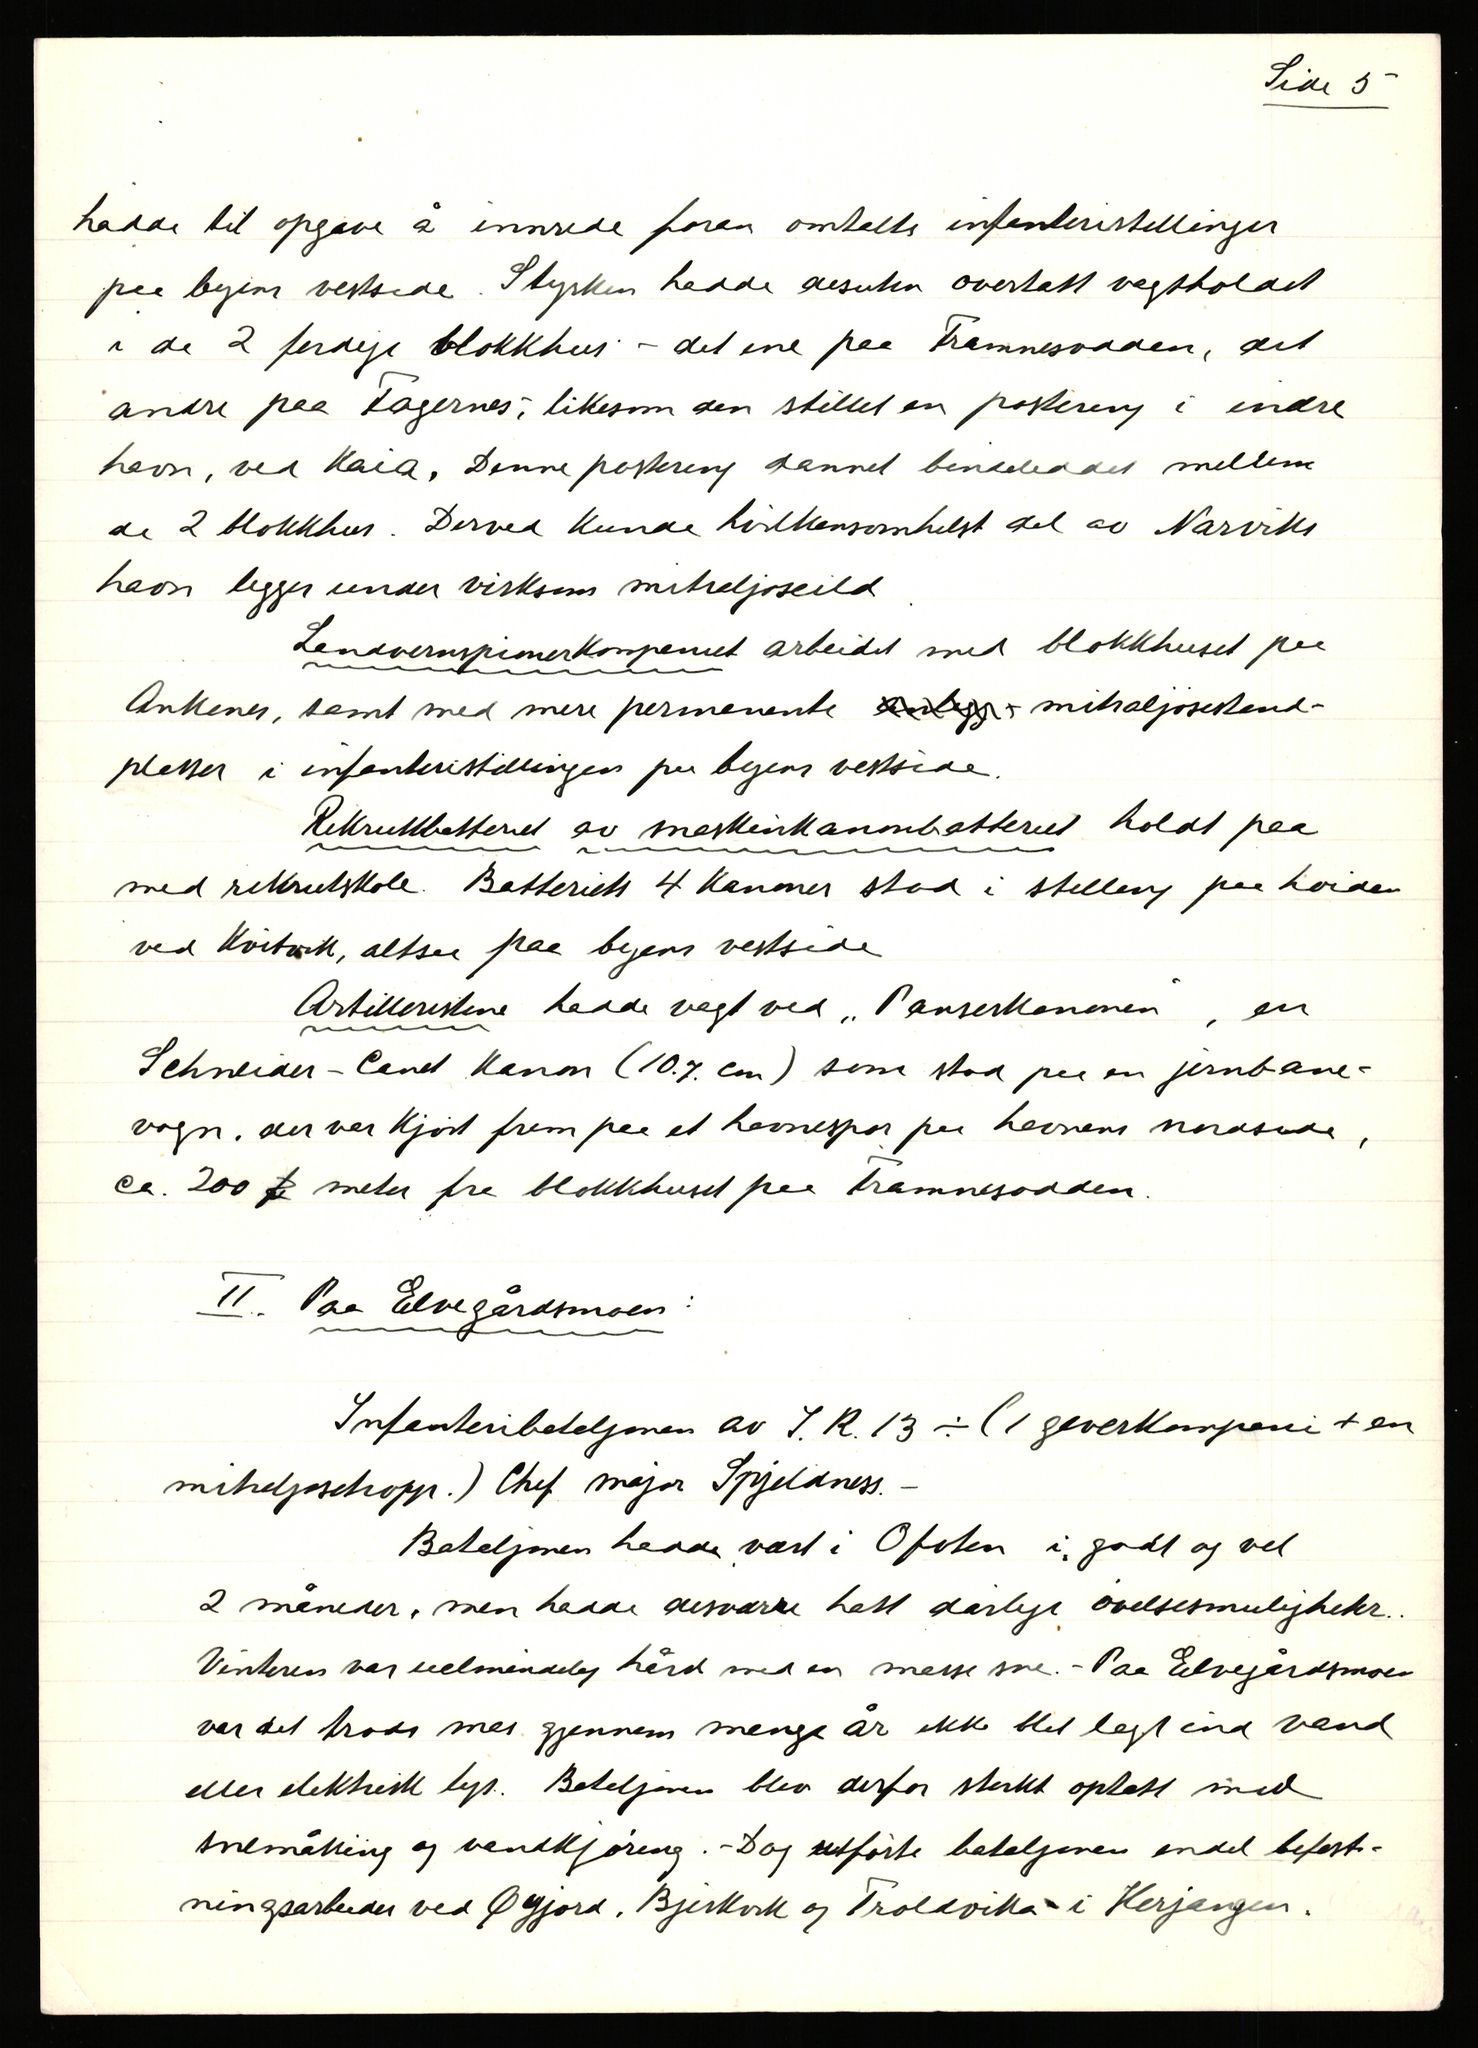 Side 5
hadde til opgave å innrede foran omtalte infanteristillinger
paa byens vestside. Styrken hadde desuten overtatt vagtholdet
i de 2 ferdige blokkhus - det ene paa Framnesodden, det
andre paa Fagernes, likesom den stillet en postering i indre
havn, ved Kaia. Denne postering dannet bindeleddet mellem
de 2 blokkhus. Derved kunde hvilkensomhelst del av Narviks
havn legges under virksom mitraljøseild.
Landvernspionerkompaniet arbeidet med blokkhuset paa
Ankenes, samt med mere permanente mitraljøsestand-
plasser i infanteristillingen paa byens vestside.
Rekruttbatteriet av maskinkanonbatteriet holdt paa
med rekrutskole. Batteriets 4 kanoner stod i stilling paa høiden
ved Kvitvik, altsaa paa byens vestside
Artilleristene hadde vagt ved „Panserkanonen", en
Schneider-Canet kanon (10.7. cm) som stod paa en jernbane-
vogn, der var kjørt frem paa et havnespor paa havnens nordside,
ca. 200 meter fra blokkhuset paa Framnesodden.
II. Paa Elvegårdsmoen:
Infanteribataljonen av I.R. 13 ÷ (1 geverkompani + en
mitraljøsetropp.) Chef major Spjeldness. -
Bataljonen hadde vært i Ofoten i godt og vel
2 måneder, men hadde desværre hatt dårlige øvelsesmuligheter.
Vinteren var ualmindelig hård med en masse sne. - Paa Elvegårdsmoen
var det trods mas gjennem mange år ikke blet lagt ind vand
eller elektrisk lys. Bataljonen blev derfor sterkt optatt med
snemåking og vandkjøring. - Dog utførte bataljonen endel befest-
ningsarbeider ved Øyjord, Bjerkvik og Troldvika i Herjangen.